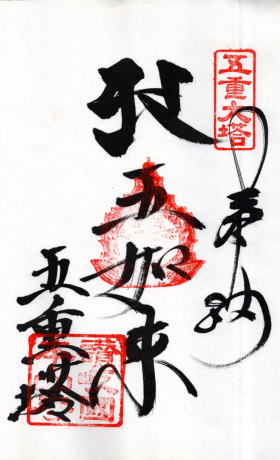 五重大塔
奉納
五如来
五重塔